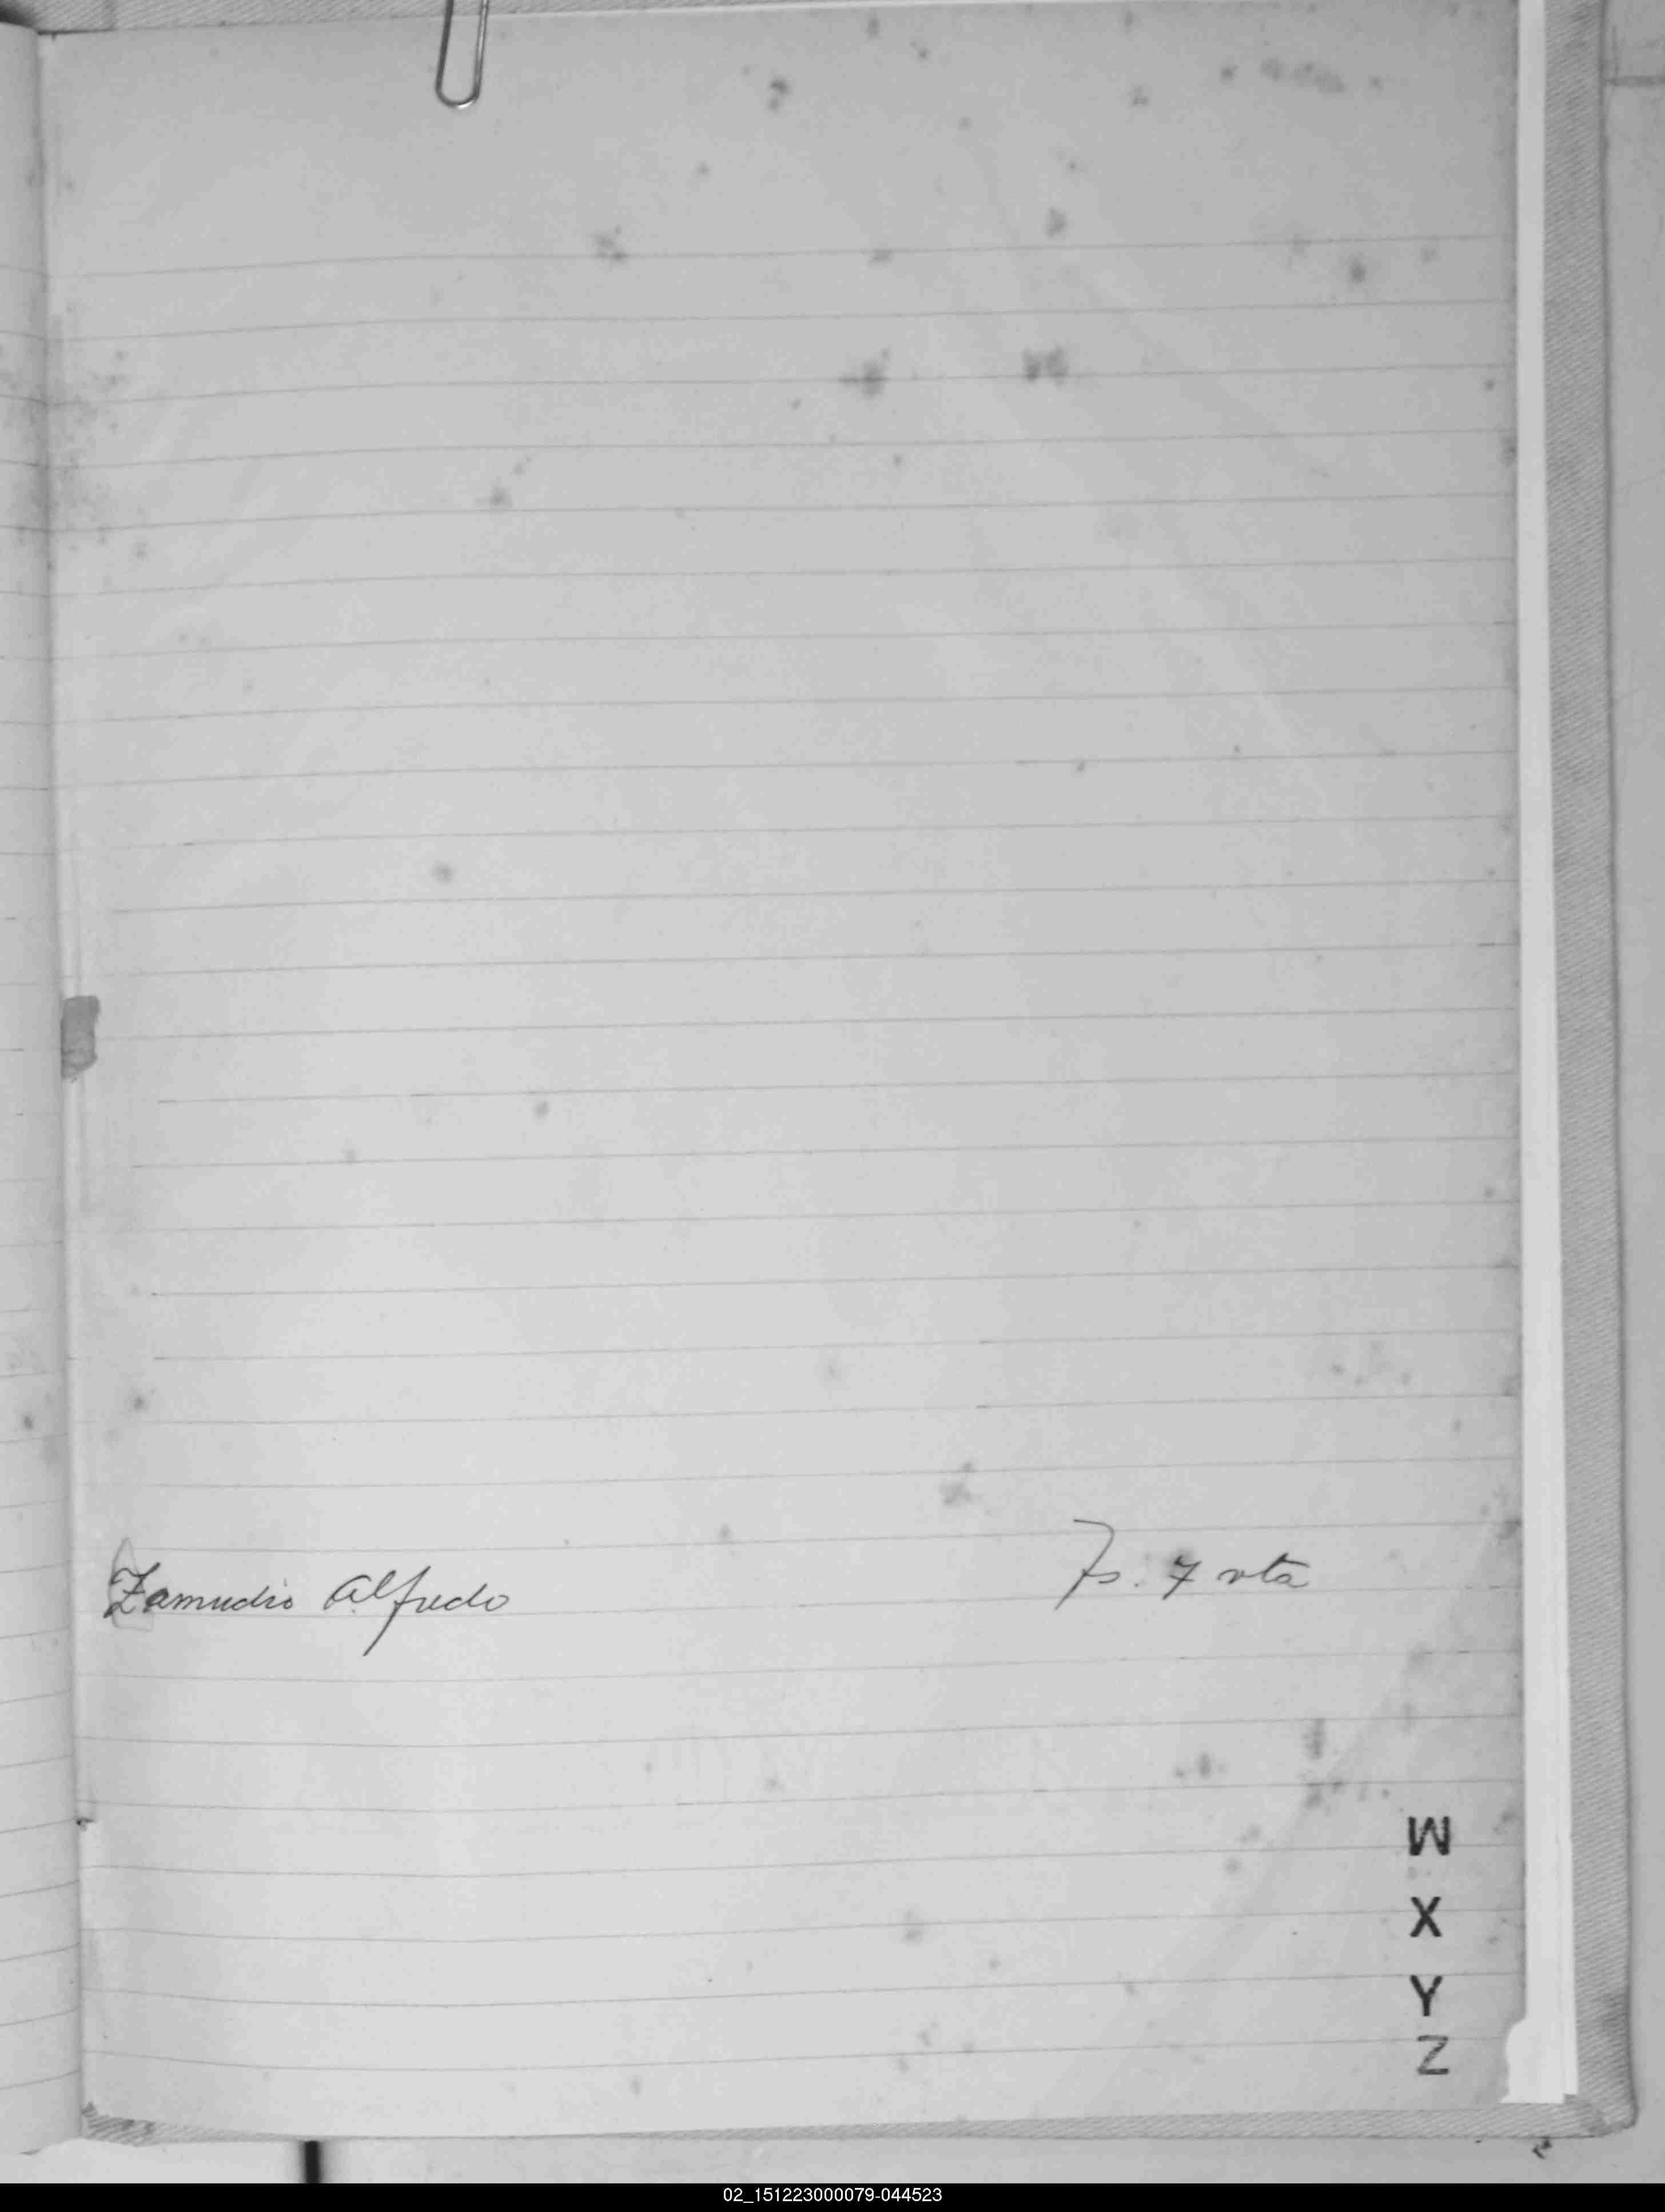 Zamudio Alfredo Fs. 7 vta
W
X
Y
Z
02_151223000079-044523